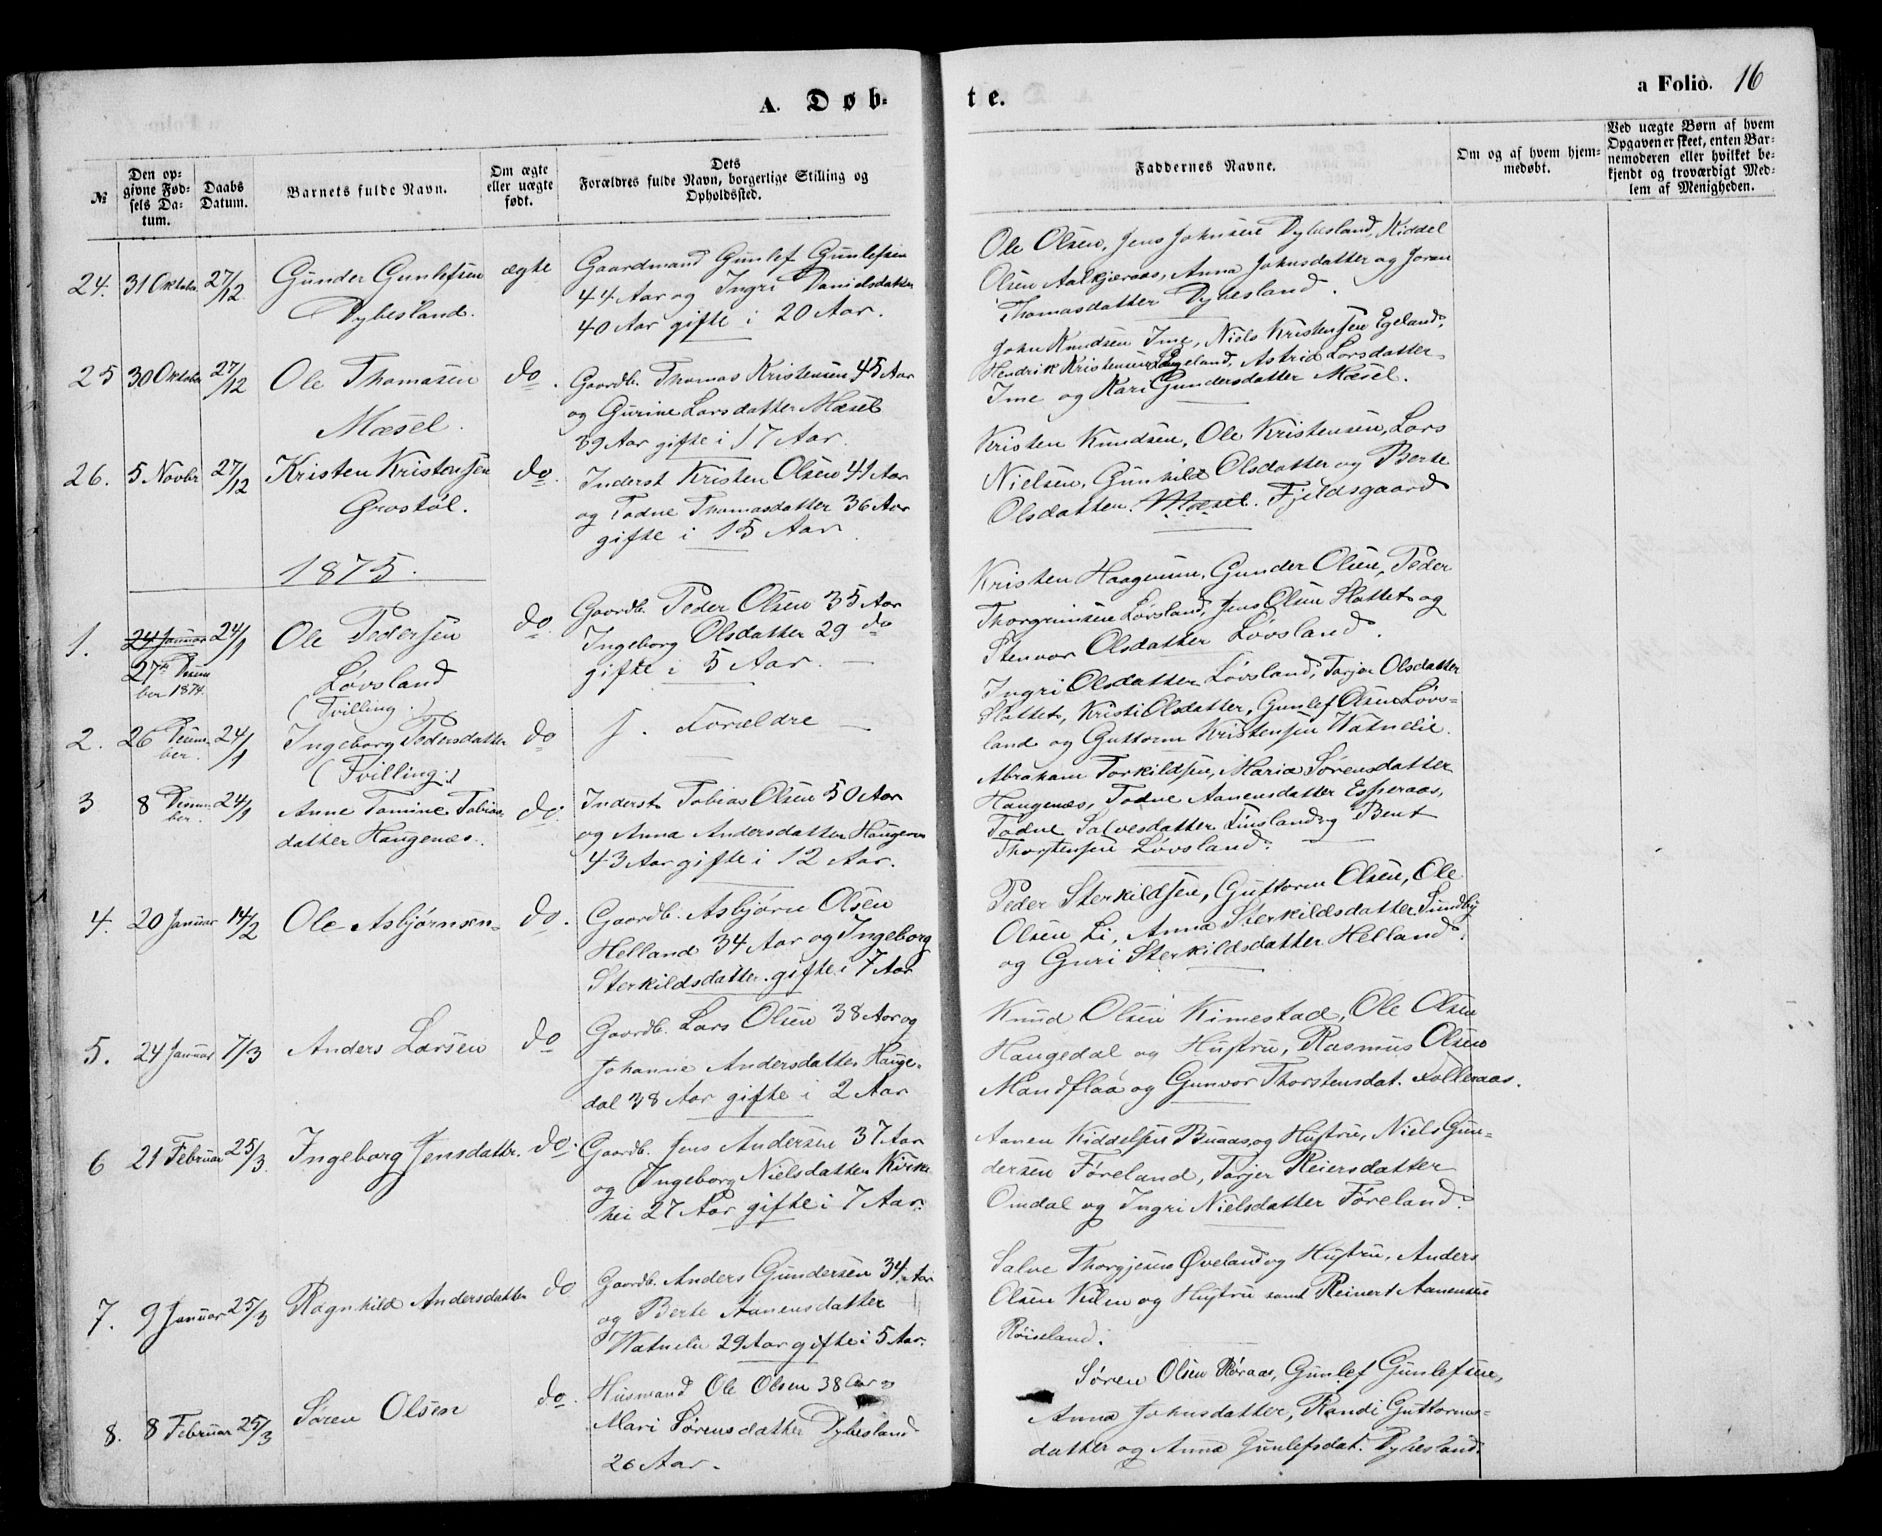 A. Døb-
te.
a Folio. 16
№
Den op-
givne Fød-
sels Da-
tum.
Daabs
Datum.
Barnets fulde Navn.
Om ægte
eller uægte
født.
Dets
Forældres fulde Navn, borgerlige Stilling og
Opholdssted.
Faddernes Navne.
Om og af hvem hjem-
medøbt.
Ved uægte Børn af hvem
Opgaven er skeet, enten Bar-
nemoderen eller hvilket be-
kjendt og troværdigt Med-
lem af Menigheden.
24. 31 Oktober 27/12 Gunder Gunlefsen ægte Gaardmand Gunlef Gunlefsen
Dybesland. 44 Aar og Ingri Danielsdatter
40 Aar gifte i 20 Aar.
Ole Olsen, Jens Johnsen Dybesland, Kiddel
Olsen Aalkjæraas, Anna Johnsdatter og Joran
Thomasdatter Dybesland.
25 30 Oktober 27/12 Ole Thomasen do. Gaardb. Thomas Kristensen 45 Aar
Mæsel. og Gurine Larsdatter Mæsel
39 Aar gifte i 17 Aar.
John Knudsen Ime, Niels Kristensen Egeland,
Hendrik Kristensen Egeland, Astrid Larsdatter
Ime og Kari Gundersdatter Mæsel.
26. 5 Novbr 27/12 Kristen Kristensen do. Inderst Kristen Olsen 41 Aar
Grostøl. og Todne Thomasdatter 36 Aar
gifte i 15 Aar.
Kristen Knudsen, Ole Kristensen, Lars
Nielsen, Gunhild Olsdatter og Berte
Olsdatter. Mæsel. Fjeldsgaard
1875.
1. 24 Januar 24/1 Ole Pedersen do. Gaardb. Peder Olsen 35 Aar
27de Decem
ber 1874. Løvsland Ingeborg Olsdatter 29 do
(Tvilling.) gifte i 5 Aar.
Kristen Haagensen, Gunder Olsen, Peder
Thorgrimsen Løvsland, Jens Olsen Slottet og
Stenvor Olsdatter Løvsland.
2. 26 Decem-
ber. 24/1 Ingeborg Pedersdatter do f. Forældre
(Tvilling.)
Ingri Olsdatter Løvsland, Tarjer Olsdatter
Slottet, Kristi Olsdatter, Gunlef Olsen Løvs-
land og Guttorm Kristensen Watnelie.
3 8 Decem-
ber. 24/1 Anne Tomine Tobias- do. Inderst Tobias Olsen 50 Aar
datter Haugenæs. og Anna Andersdatter Haugenæs
43 Aar gifte i 12 Aar.
Abraham Torkildsen, Maria Sørensdatter
Haugenæs, Todne Aanensdatter Esperaas,
Todne Salvesdatter Finsland og Bent
Thorstensen Løvsland.
4. 20 Januar 14/2 Ole Asbjørnsen do. Gaardb. Asbjørn Olsen
Helland 34 Aar og Ingeborg
Sterkildsdatter gifte i 7 Aar
Peder Sterkildsen, Guttorm Olsen, Ole
Olsen Li, Anna Sterkildsdatter Sundby
og Guri Sterkildsdatter Helland.
5. 24 Januar 7/3 Anders Larsen do Gaardb. Lars Olsen 38 Aar og
Johanne Andersdatter Hauge-
dal 38 Aar gifte i 2 Aar
Knud Olsen Kimestad, Ole Olsen
Haugedal og Hustru, Rasmus Olsen
Mandflaa og Gunvor Thorstensdat. Folleraas.
6 21 Februar 25/3. Ingeborg Jensdatter. do. Gaardb. Jens Andersen 37 Aar
og Ingeborg Nielsdatter Kirke
hei 27 Aar gifte i 7 Aar.
Aanen Kiddelsen Buaas, og Hustru, Niels Gun-
dersen Føreland, Tarjer Reiersdatter
Omdal og Ingri Nielsdatter Føreland.
7. 9 Januar 25/3 Ragnhild Andersdatter do Gaardb. Anders Gundersen 34 Aar
og Berte Aanensdatter
Watnelie 29 Aar gifte i 5 Aar.
Salve Thorgjesen Øveland og Hustru, Anders
Olsen Kilen og Hustru samt Reinert Aanensen
Røiseland.
8. 8 Februar 25/3 Søren Olsen do. Husmand Ole Olsen 38 Aar og
Mari Sørensdatter Dybesland
26 Aar.
Søren Olsen Røraas, Gunlef Gunlefsen,
Anna Johnsdatter, Randi Guttorms-
datter og Anna Gunlefsdat. Dybesland.